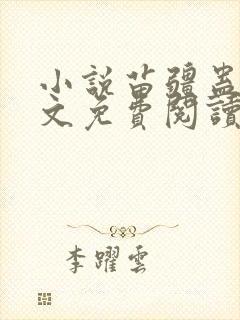 小説苗疆蠱
文免費閱讀
李躍雲